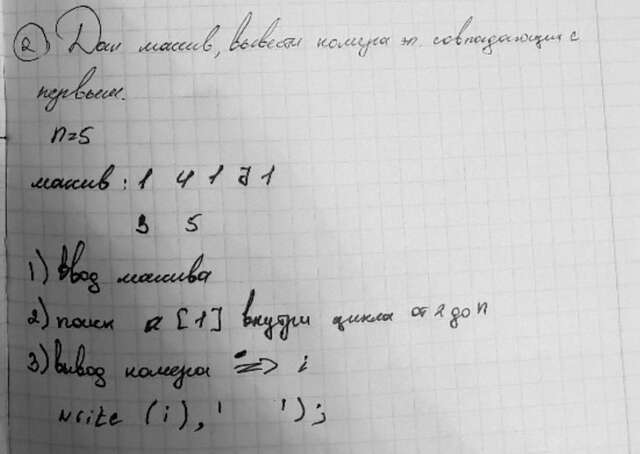 2) Дан массив, вывести номера эл. совпадающих с
первым.
n=5
массив: 1 4 1 7 1
3 5
1) Ввод массива
2) поиск a[1] внутри цикла от 2 до n
3) вывод номера => i
write (i),' ');